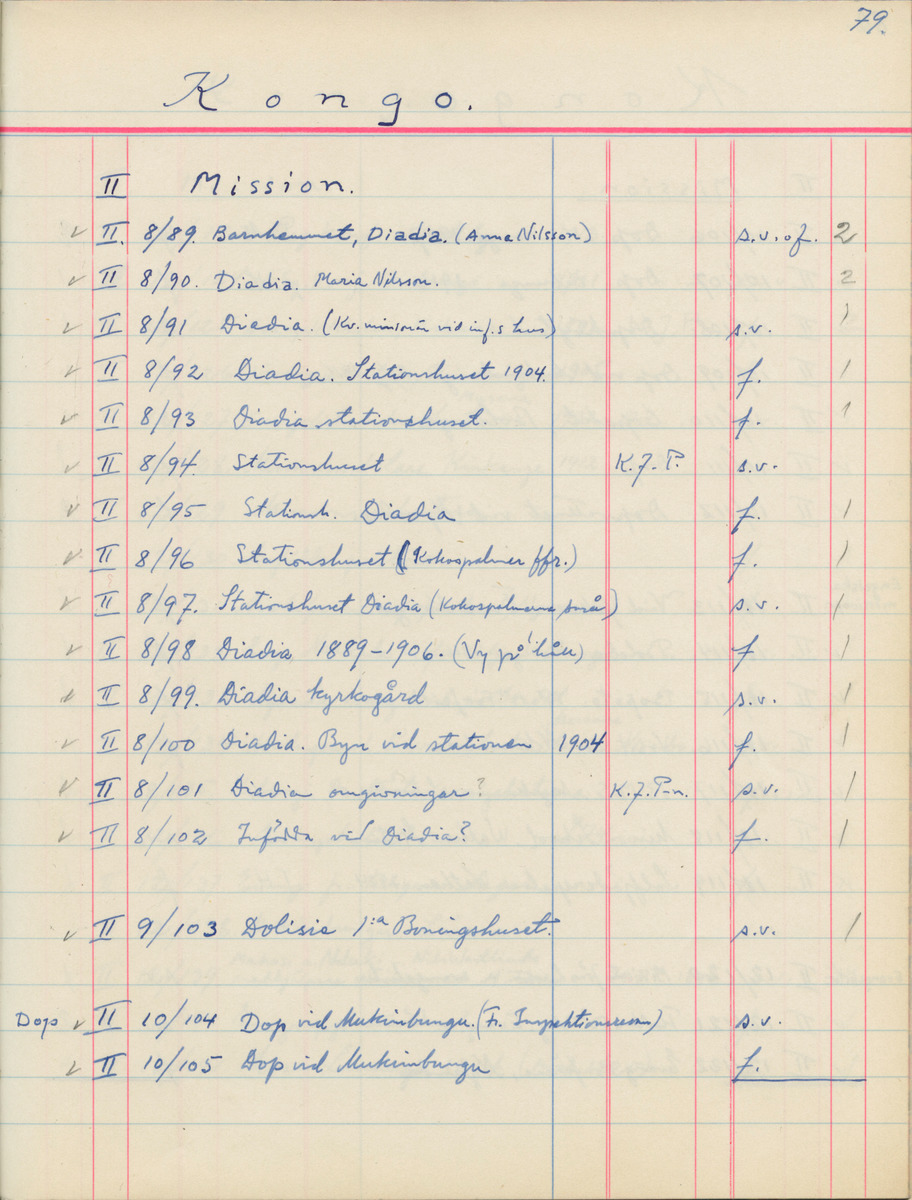 79.
Kongo.
II Mission.
✓ II. 8/89. Barnhemmet, Diadia. (Anna Nilsson) s.v. o f. 2
✓ II 8/90. Diadia. Maria Nilsson. 2
✓ II 8/91 Diadia. (Kv. minionär vid inf.s hus) s.v. 1
✓ II 8/92 Diadia. Stationshuset 1904. f. 1
✓ II 8/93 Diadia stationshuset. f. 1
✓ II 8/94. Stationshuset K.J.P. s.v.
✓ II 8/95 Stationsh. Diadia f. 1
✓ II 8/96 Stationshuset (Kokospalmer ffr.) f. 1
✓ II 8/97. Stationshuset Diadia (Kokospalmerna små) s.v. 1
✓ II 8/98 Diadia 1889-1906. (Vy på håll) f 1
✓ II 8/99. Diadia kyrkogård s.v. 1
✓ II 8/100 Diadia. Byn vid stationen 1904 f. 1
✓ II 8/101 Diadia omgivningar? K.J.P-n. s.v. 1
✓ II 8/102 Infödda vid Diadia? f. 1
✓ II 9/103 Dolisie 1:a Boningshuset. s.v. 1
Dop ✓ II 10/104 Dop vid Mukimbungu. (Fr. Inspektionsresan) s.v.
✓ II 10/105 Dop vid Mukimbungu f.